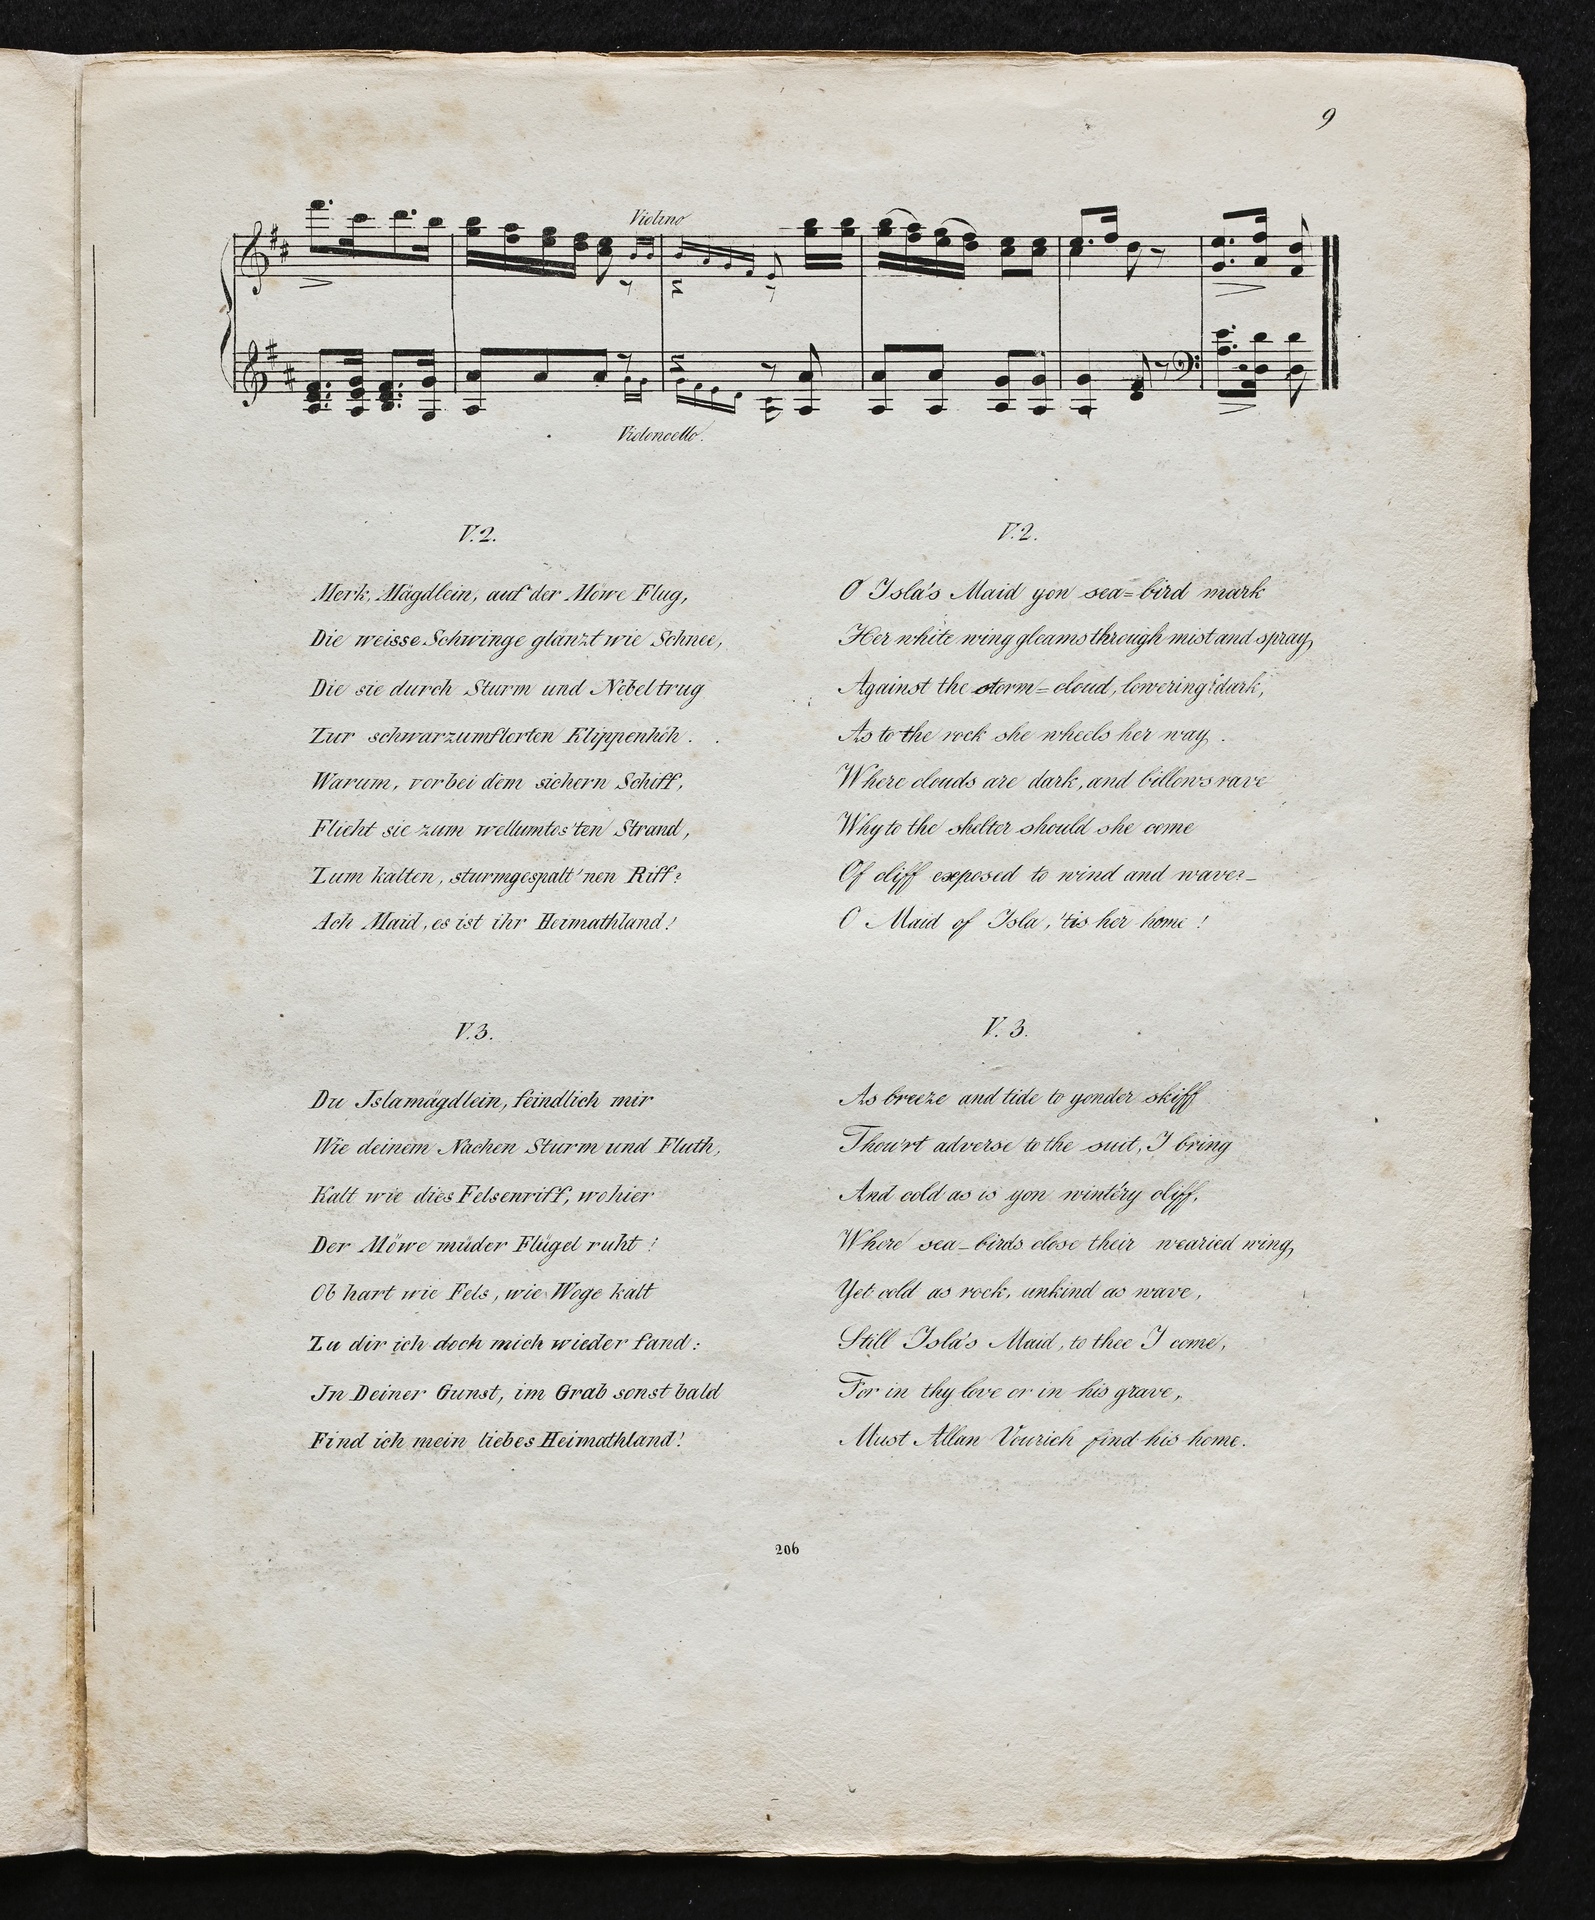 9
Violino
Violoncello.
V.2.
Merk, Mägdlein, auf der Möwe Flug,
Die weisse Schwinge glänzt wie Schnee,
Die sie durch Sturm und Nebel trug
Zur schwarzumflorten Klippenhöh.
Warum, vorbei dem sichern Schiff,
Flieht sie zum wellumtos'ten Strand,
Zum kalten, sturmgespalt'nen Riff?
Ach Maid, es ist ihr Heimathland!
V.3.
Du Jslamägdlein, feindlich mir
Wie deinem Nachen Sturm und Fluth,
Kalt wie dies Felsenriff, wo hier
Der Möwe müder Flügel ruht!
Ob hart wie Fels, wie Woge kalt
Zu dir ich doch mich wieder fand:
Jn Deiner Gunst, im Grab sonst bald
Find ich mein liebes Heimathland!
V.2.
O Isla's Maid yon sea=bird mark
Her white wing gleams through mist and spray,
Against the storm=cloud, lowering dark,
As to the rock she wheels her way.
Where clouds are dark, and billows rave
Why to the shelter should she come
Of cliff exposed to wind and wave?_
O Maid of Isla, 'tis her home!
V. 3.
As breeze and tide to yonder skiff
Thou'rt adverse to the suit, I bring
And cold as is yon wint'ry cliff,
Where sea_birds close their wearied wing,
Yet cold as rock, unkind as wave,
Still Isla's Maid, to thee I come,
For in thy love or in his grave,
Must Allan Vourich find his home.
206